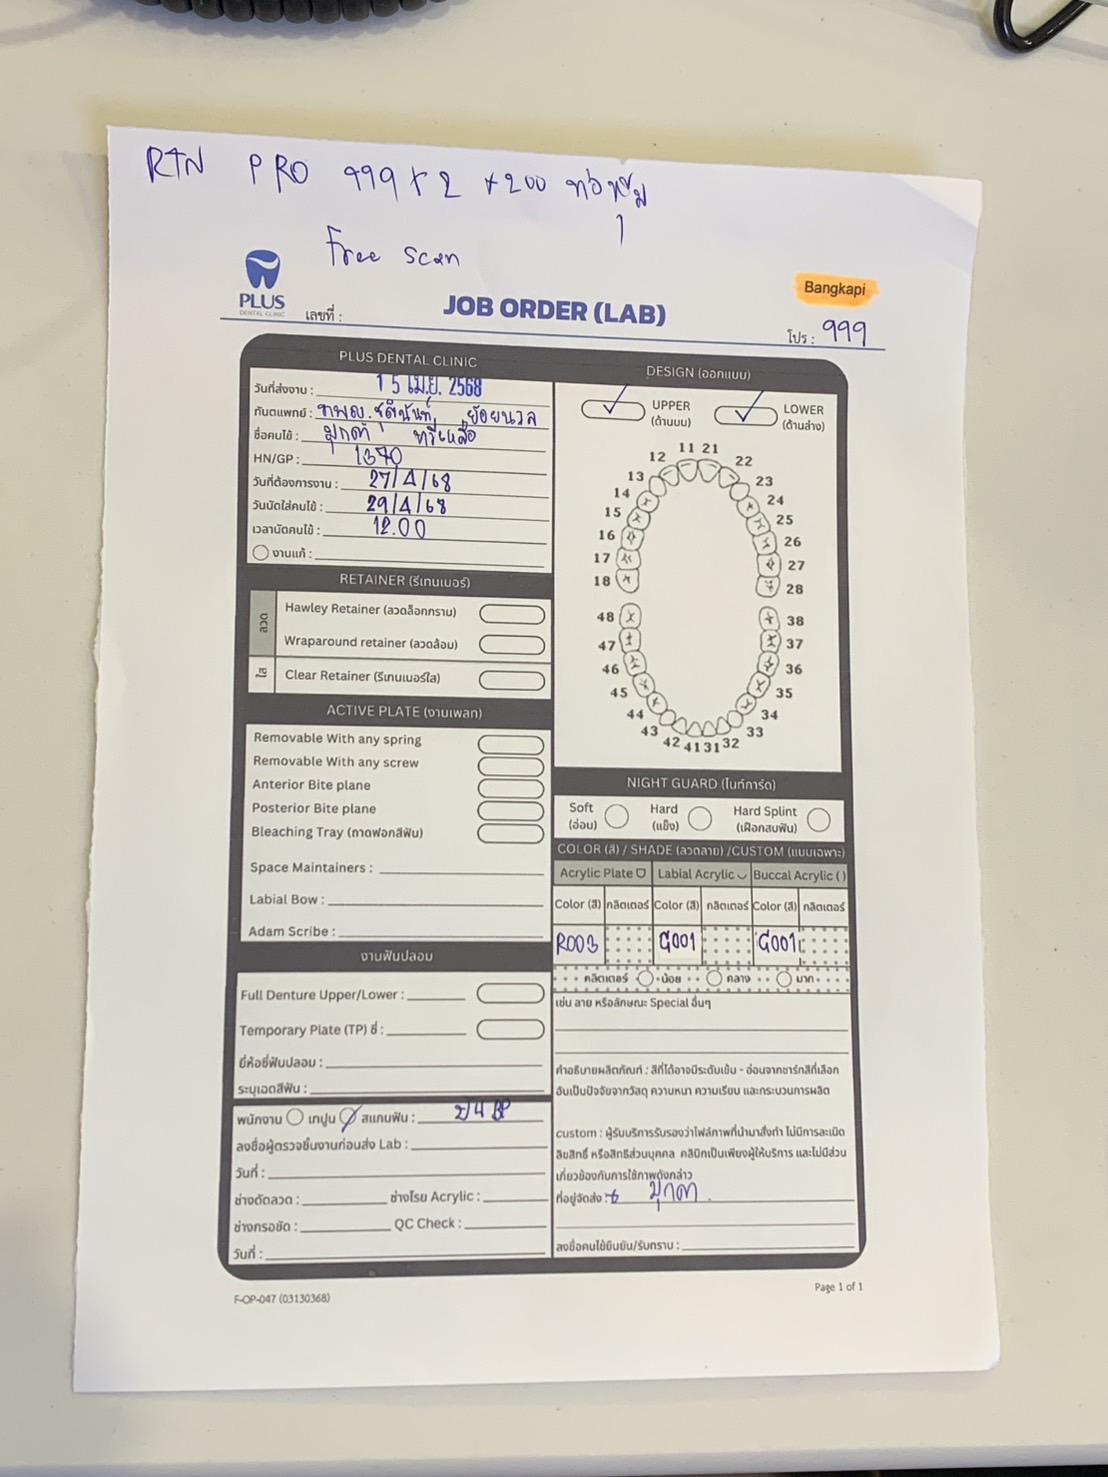 RTN PRO 999 x 2 +200 ท่อหุ้ม
1
Free scan
PLUS
DENTAL CLINIC
เลขที่ :
JOB ORDER (LAB)
Bangkapi
โปร : 999
PLUS DENTAL CLINIC
วันที่ส่งงาน : 15 เม.ย. 2568
ทันตแพทย์ : ทพญ. ชุตินันท์ ย้อยนวล
ชื่อคนไข้ : มุกดา
HN/GP : 1370
วันที่ต้องการงาน : 27/4/68
วันนัดใส่คนไข้ : 29/4/68
เวลานัดคนไข้ : 12.00
งานแก้ :
RETAINER (รีเทนเนอร์)
ลวด
Hawley Retainer (ลวดล็อกกราม)
Wraparound retainer (ลวดล้อม)
ใส
Clear Retainer (รีเทนเนอร์ใส)
ACTIVE PLATE (งานเพลท)
Removable With any spring
Removable With any screw
Anterior Bite plane
Posterior Bite plane
Bleaching Tray (ถาดฟอกสีฟัน)
Space Maintainers :
Labial Bow :
Adam Scribe :
งานฟันปลอม
Full Denture Upper/Lower :
Temporary Plate (TP) ซี่ :
ยี่ห้อซี่ฟันปลอม :
ระบุเฉดสีฟัน :
พนักงาน เทปูน สแกนฟัน :
ลงชื่อผู้ตรวจชิ้นงานก่อนส่ง Lab :
วันที่ :
ช่างดัดลวด : ช่างโรย Acrylic :
ช่างกรอขัด : QC Check :
วันที่ :
DESIGN (ออกแบบ)
UPPER (ด้านบน)
LOWER (ด้านล่าง)
11 21
12 22
13 23
14 24
15 25
16 26
17 27
18 28
48 38
47 37
46 36
45 35
44 34
43 33
42 41 31 32
NIGHT GUARD (ไนท์การ์ด)
Soft (อ่อน)
Hard (แข็ง)
Hard Splint (เฝือกสบฟัน)
COLOR (สี) / SHADE (ลวดลาย) /CUSTOM (แบบเฉพาะ)
Acrylic Plate Labial Acrylic Buccal Acrylic ()
Color (สี) กลิตเตอร์ Color (สี) กลิตเตอร์ Color (สี) กลิตเตอร์
R003 G001 G001
กลิตเตอร์ น้อย กลาง มาก
เช่น ลาย หรือลักษณะ Special อื่นๆ
คำอธิบายผลิตภัณฑ์ : สีที่ได้อาจมีระดับเข้ม - อ่อนจากชาร์ทสีที่เลือก
อันเป็นปัจจัยจากวัสดุ ความหนา ความเรียบ และกระบวนการผลิต
custom : ผู้รับบริการรับรองว่าไฟล์ภาพที่นำมาสั่งทำ ไม่มีการละเมิด
ลิขสิทธิ์ หรือสิทธิส่วนบุคคล คลินิกเป็นเพียงผู้ให้บริการ และไม่มีส่วน
เกี่ยวข้องกับการใช้ภาพดังกล่าว
ที่อยู่จัดส่ง : มุกดา
ลงชื่อคนไข้ยืนยัน/รับทราบ :
F-OP-047 (03130368)
Page 1 of 1